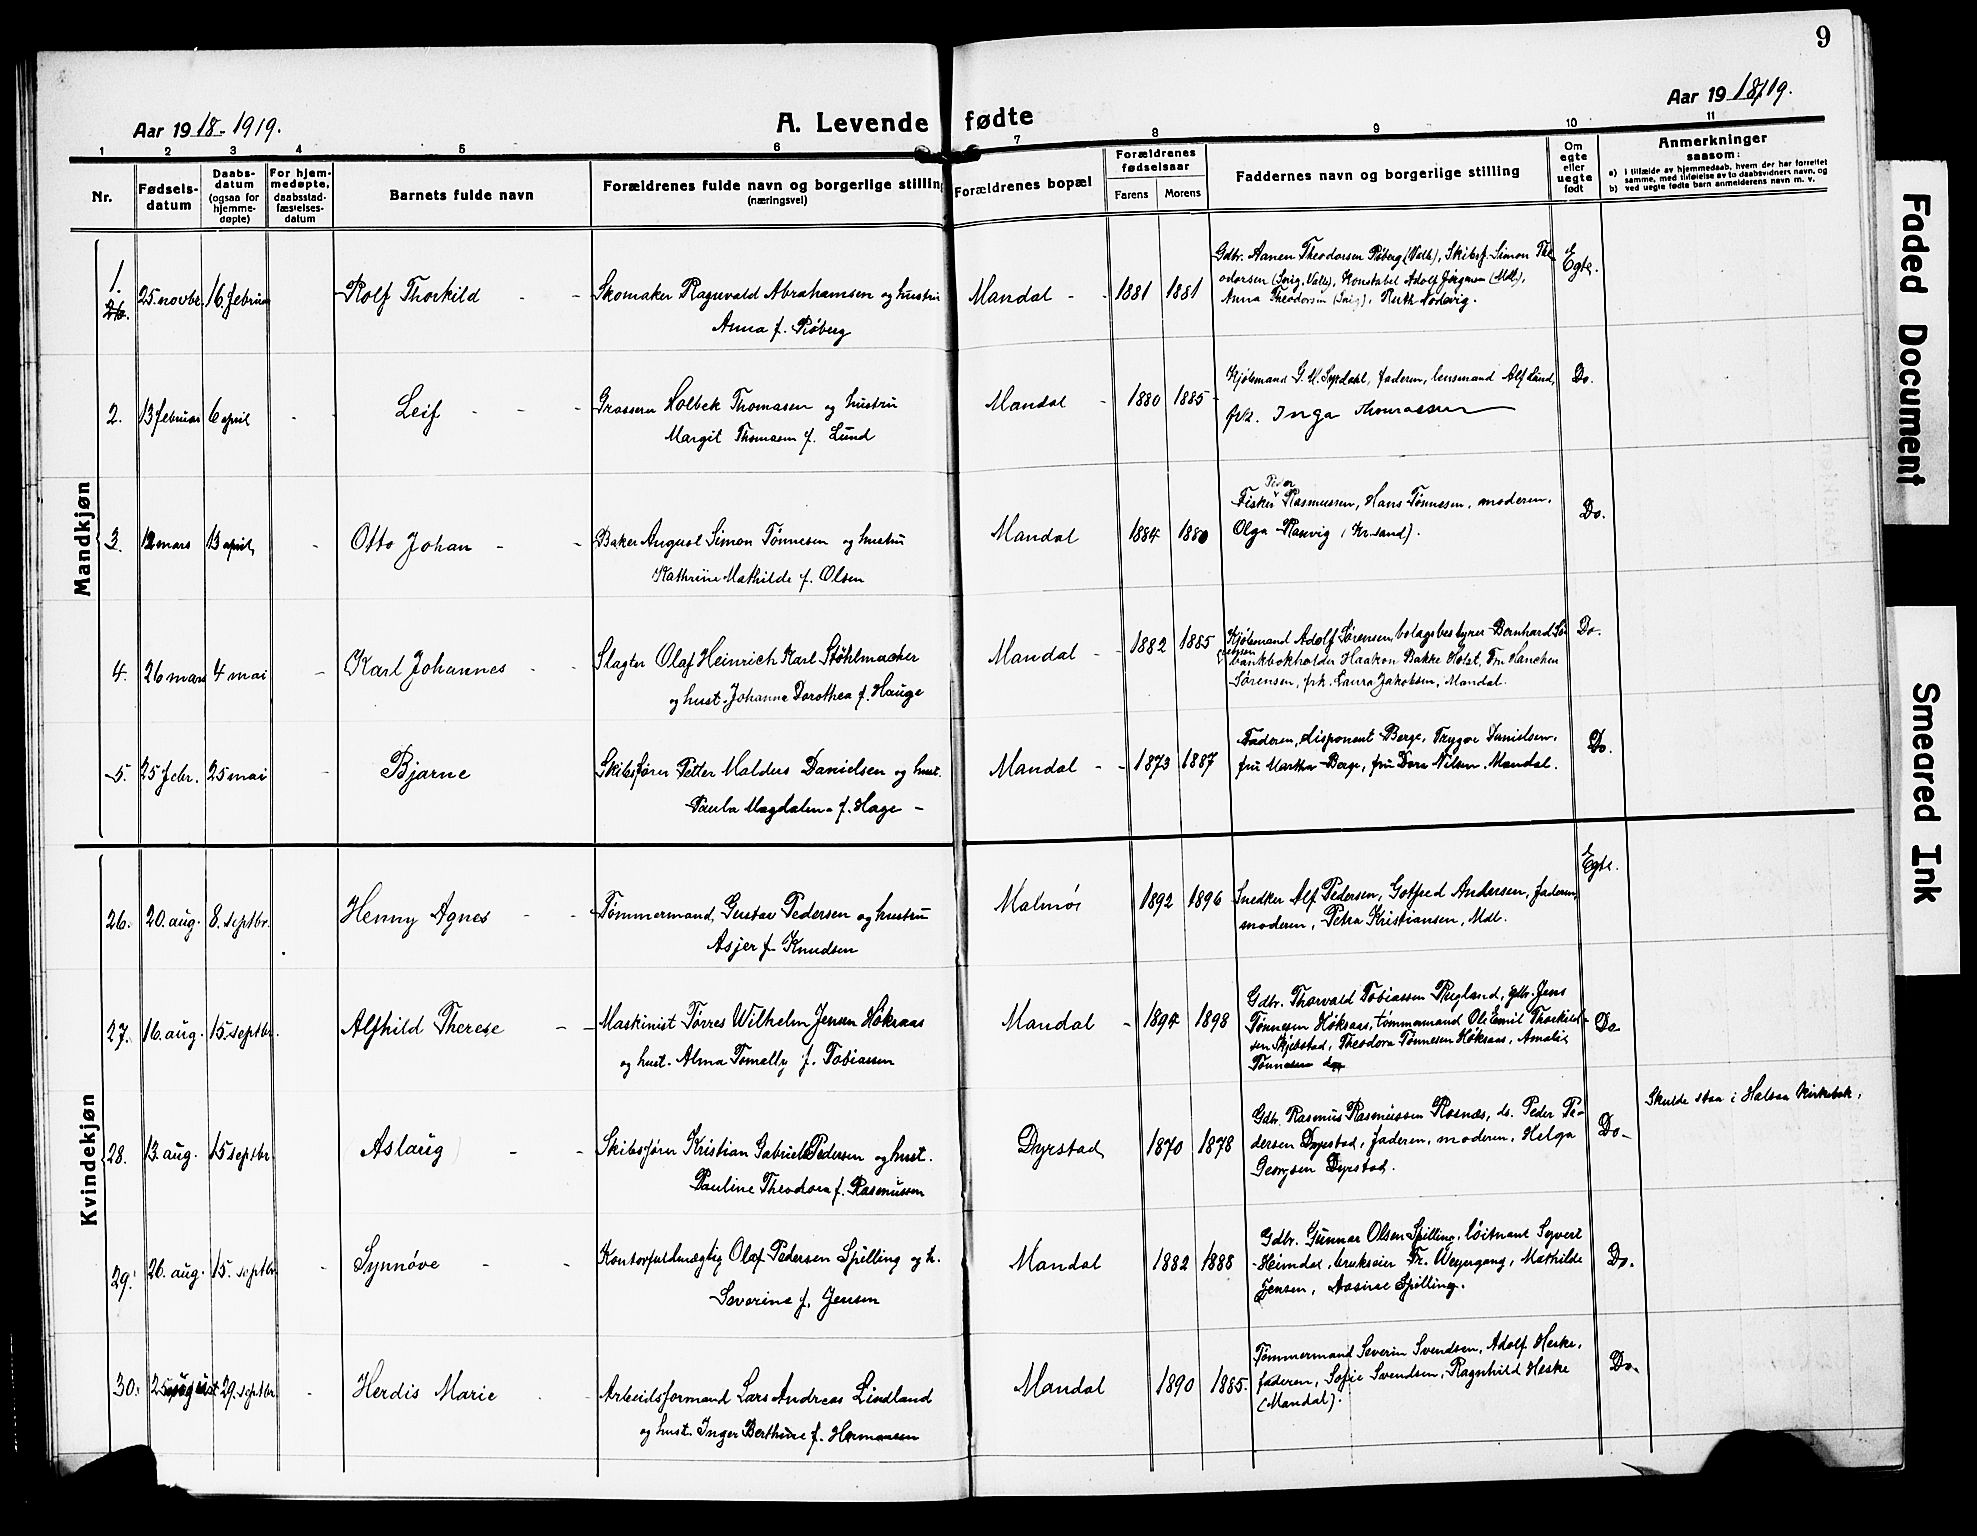 9
Aar 1918-1919.
A. Levende fødte
Aar 1918/19.
1 2 3 4 5 6 7 8 9 10 11
Nr.
Fødsels-
datum
Daabs-
datum
(ogsaa for
hjemme-
døpte)
For hjem-
medøpte,
daabsstad-
fæstelses-
datum
Barnets fulde navn
Forældrenes fulde navn og borgerlige stilling
(næringsvei)
Forældrenes bopæl
Forældrenes
fødselsaar
Farens Morens
Faddernes navn og borgerlige stilling
Om
egte
eller
uegte
født
Anmerkninger
saasom:
a) i tilfælde av hjemmedaab, hvem der har forrettet
samme, med tilføielse av to daabsvidners navn, og
b) ved uegte fødte barn anmelderens navn m. v.
Mandkjøn
1.
26.
25. novbr. 16. februar Rolf Thorkild - -
Skomaker Ragnvald Abrahamsen og hustru
Anna f. Røberg
Mandal - - 1881 1881
Gdbr. Aanen Theodorsen Røberg (Valle), Skibsf. Simon The-
odorsen (Valle), Konstabel Adolf Jørgensen (Mdl),
Anna Theodorsen, Ruth Nordvig.
Egte.
2. 13 februar 6 april - Leif - - -
Grosserer Holbek Thomasen og hustru
Margit Thomasen f. Lund
Mandal - 1880 1885 -
Kjøbmand G. M. Syrdahl, faderen, lensmand Alf Lund,
frk. Inga Thomassen
Do.
3. 12 mars 13 april - Otto Johan - -
Baker August Simon Tønnesen og hustru
Kathrine Mathilde f. Olsen
Mandal 1884 1880
Peder
Fisker Rasmussen, Hans Tønnesen, moderen,
Olga Rasvig (Kr.sand).
Do.
4. 26 mars 4 mai - Karl Johannes - -
Slagter Olaf Heinrich Karl Støhlmacher
og hust. Johanne Dorothea f. Hauge
Mandal - - 1882 1885
Kjøbmand Adolf Sørensen, bolagsbestyrer Bernhard Sø-
rensen
bankbokholder Haakon Bakke Holst, Fru Hanchen
Sørensen, frk. Laura Jakobsen, Mandal.
Do.
5. 25 febr. 25 mai - Bjarne
Skibsfører Petter Malders Danielsen og hust.
Paula Magdalena f. Hage -
Mandal - - 1873 1887
Faderen, disponent Berge, Trygve Danielsen,
fru Martha Berge, fru Dora Nilsen. Mandal.
Do.
Kvindekjøn
26. 20. aug. 8. septbr. Henny Agnes - -
Tømmermand, Gustav Pedersen og hustru
Asjer f. Knudsen
Malmø 1892 1896
Snedker Alf Pedersen, Gotfred Andersen, faderen,
moderen, Petra Kristiansen, Mdl.
Egte.
27. 16. aug. 15. septbr. Alfhild Therese - -
Maskinist Tørres Wilhelm Jensen Høksaas
og hust. Alma Tomally f. Tobiassen
Mandal - 1894 1898
Gdbr. Thorvald Tobiassen Rugland, gdbr. Jens
Tønnesen Høksaas, tømmermand Ole Emil Thorkild-
sen Skjebstad, Theodora Tønnesen Høksaas, Amalie
Tønnesen do
Do.
28. 13. aug. 15 septbr Aslaug - -
Skibsfører Kristian Gabriel Pedersen og hust.
Pauline Theodora f. Rasmussen
Dyrstad 1870 1878
Gdbr. Rasmus Rasmussen Rosnæs, do. Peder Pe-
dersen Dyrstad, faderen, moderen, Helga
Georgsen Dyrstad.
Do -
Skulde staa i Halsaa kirkebok.
29. 26. aug. 15. septbr. - Synnøve - -
Kontorfuldmægtig Olaf Pedersen Spilling og h.
Severine f. Jensen
Mandal 1882 1888
Gdbr. Gunnar Olsen Spilling, løitnant Syvert
Heimdal, brukseier Fr. Weyergang, Mathilde
Jensen, Spilling.
Do.
30. 25 august 29. septbr. - Herdis Marie -
Arbeidsformand Lars Andreas Lindland
og hust. Inger Berthine f. Hermansen
Mandal 1890 1885.
Tømmermand Severin Svendsen, Adolf Heske,
faderen, Sofie Svendsen, Ragnhild Heske
(Mandal).
Do.
Faded Document
Smeared Ink